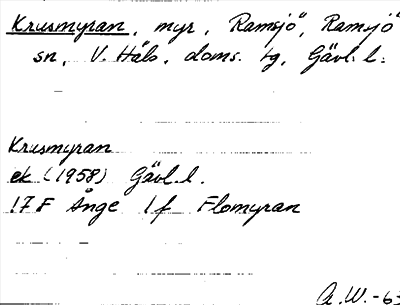 Krusmyran, myr, Ramsjö, Ramsjö
sn, V. Häls. doms. tg, Gävl. l.
Krusmyran
ek (1958) Gävl. l.
17 F Ånge 1 f Flomyran
A.W. -63